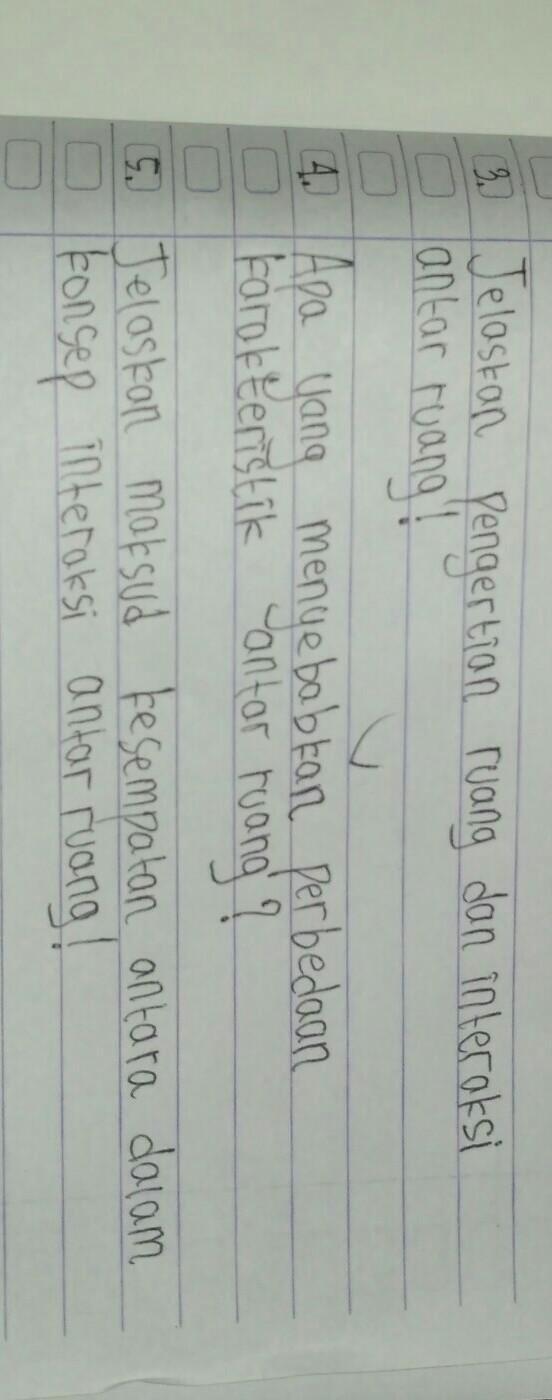 3. Jelaskan pengertian ruang dan interaksi
antar ruang!
4. Apa yang menyebabkan perbedaan
karakteristik antar ruang?
5. Jelaskan maksud kesempatan antara dalam
konsep interaksi antar ruang!